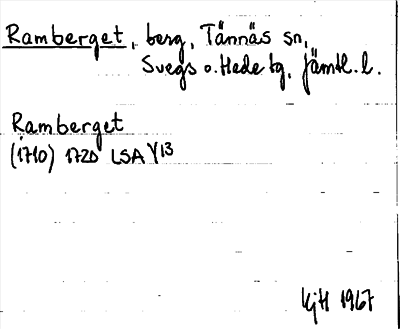 Ramberget, berg, Tännäs sn,
Svegs o. Hede tg, Jämtl. l.
Ramberget
(1710) 1720 LSA Y13
KjH 1967